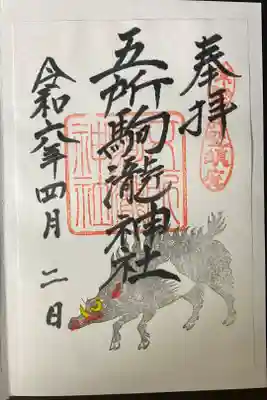 奉拝
五所駒瀧神社
令和六年四月二日